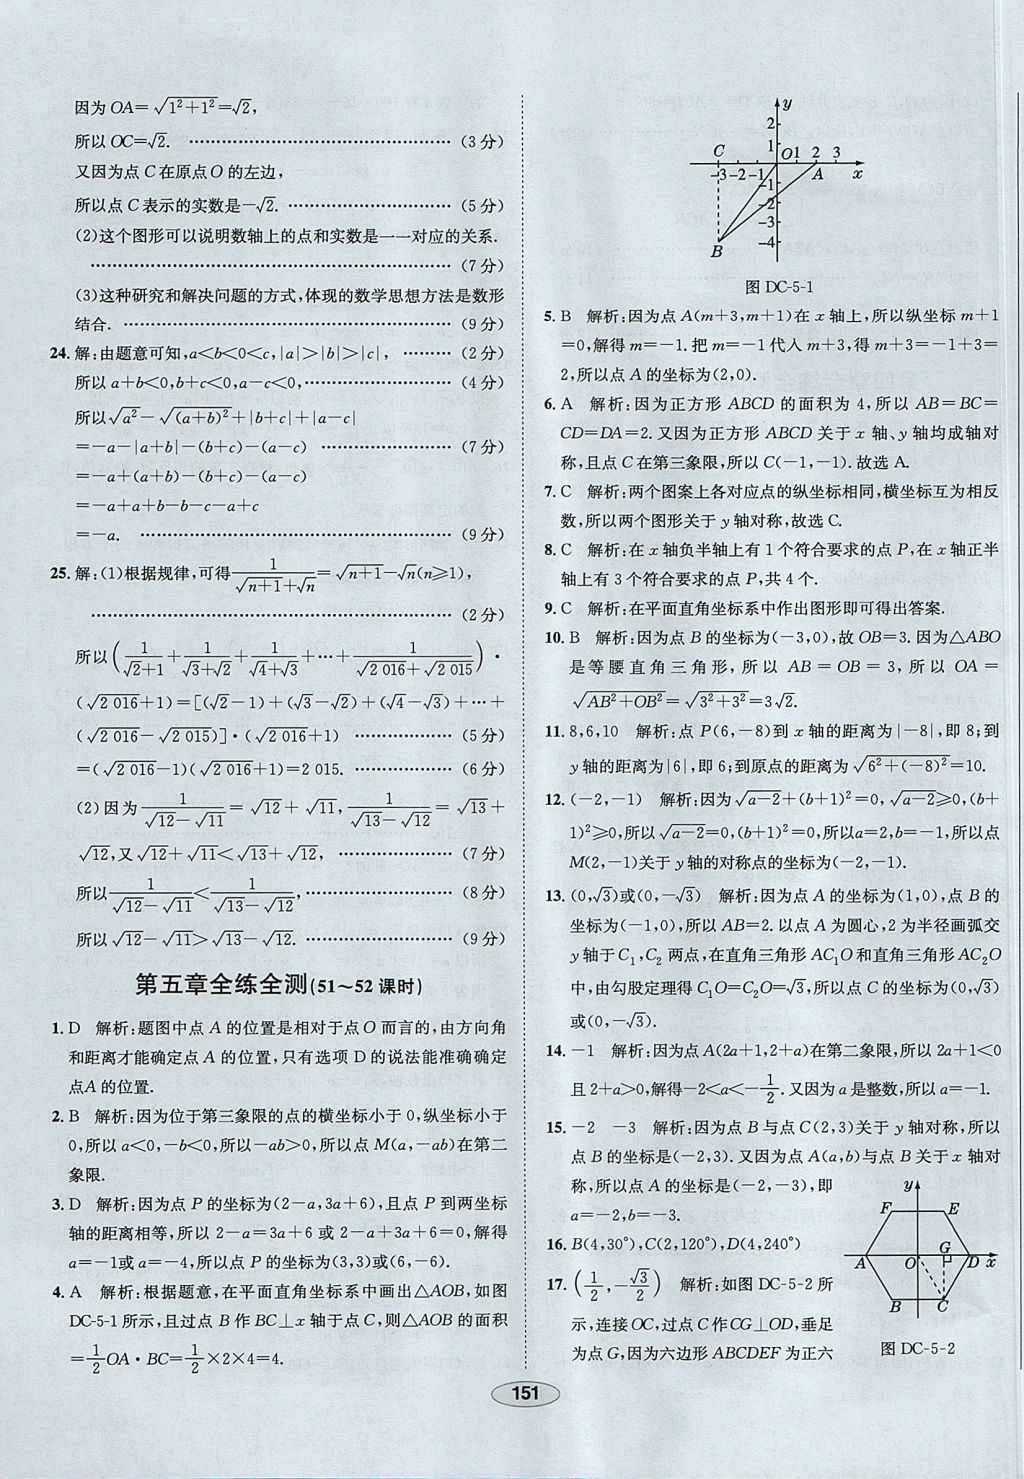 因为OA=√(1²+1²)=√2,
所以OC=√2. ……(3分)
又因为点C在原点O的左边,
所以点C表示的实数是-√2. ……(5分)
(2)这个图形可以说明数轴上的点和实数是一一对应的关系.
……(7分)
(3)这种研究和解决问题的方式,体现的数学思想方法是数形
结合. ……(9分)
24.解:由题意可知,a<b<0<c,|a|>|b|>|c|, ……(2分)
所以a+b<0,b+c<0,a-c<0, ……(4分)
所以√a²-√(a+b)²+|b+c|+|a-c|
=-a-|a+b|-(b+c)-(a-c) ……(7分)
=-a+(a+b)-(b+c)-(a-c)
=-a+a+b-b-c-a+c
=-a. ……(9分)
25.解:(1)根据规律,可得1/(√(n+1)+√n)=√(n+1)-√n(n≥1),
……(2分)
所以(1/(√2+1)+1/(√3+√2)+1/(√4+√3)+…+1/(√2 016+√2 015))·
(√2 016+1)=[(√2-1)+(√3-√2)+(√4-√3)+…+
(√2 016-√2 015)]·(√2 016+1) ……(5分)
=(√2 016-1)(√2 016+1)=2 015. ……(6分)
(2)因为1/(√12-√11)=√12+√11,1/(√13-√12)=√13+
√12,又√12+√11<√13+√12, ……(7分)
所以1/(√12-√11)<1/(√13-√12), ……(8分)
所以√12-√11>√13-√12. ……(9分)
第五章全练全测(51~52课时)
1.D 解析:题图中点A的位置是相对于点O而言的,由方向角
和距离才能确定点A的位置,只有选项D的说法能准确确定
点A的位置.
2.B 解析:因为位于第三象限的点的横坐标小于0,纵坐标小于
0,所以a<0,-b<0,所以-ab>0,所以点M(a,-ab)在第二
象限.
3.D 解析:因为点P的坐标为(2-a,3a+6),且点P到两坐标
轴的距离相等,所以2-a=3a+6或2-a+3a+6=0,解得
a=-1或a=-4,所以点P的坐标为(3,3)或(6,-6).
4.A 解析:根据题意,在平面直角坐标系中画出△AOB,如图
DC-5-1所示,且过点B作BC⊥x轴于点C,则△AOB的面积
=1/2OA·BC=1/2×2×4=4.
y
2
1
C O 1 2 3
-3 -2 -1 A x
-1
-2
-3
B -4
图DC-5-1
5.B 解析:因为点A(m+3,m+1)在x轴上,所以纵坐标m+1
=0,解得m=-1.把m=-1代入m+3,得m+3=-1+3=
2,所以点A的坐标为(2,0).
6.A 解析:因为正方形ABCD的面积为4,所以AB=BC=
CD=DA=2.又因为正方形ABCD关于x轴、y轴均成轴对
称,且点C在第三象限,所以C(-1,-1).故选A.
7.C 解析:两个图案上各对应点的纵坐标相同,横坐标互为相反
数,所以两个图形关于y轴对称,故选C.
8.C 解析:在x轴负半轴上有1个符合要求的点P,在x轴正半
轴上有3个符合要求的点P,共4个.
9.C 解析:在平面直角坐标系中作出图形即可得出答案.
10.B 解析:因为点B的坐标为(-3,0),故OB=3.因为△ABO
是等腰直角三角形,所以AB=OB=3,所以OA=
√(AB²+OB²)=√(3²+3²)=3√2.
11.8,6,10 解析:点P(6,-8)到x轴的距离为|-8|,即8;到
y轴的距离为|6|,即6;到原点的距离为√(6²+(-8)²)=10.
12.(-2,-1) 解析:因为√(a-2)+(b+1)²=0,√(a-2)≥0,(b+
1)²≥0,所以√(a-2)=0,(b+1)²=0,所以a=2,b=-1,所以点
M(2,-1)关于y轴的对称点的坐标为(-2,-1).
13.(0,√3)或(0,-√3) 解析:因为点A的坐标为(1,0),点B的
坐标为(-1,0),所以AB=2.以点A为圆心,2为半径画弧交
y轴于C₁,C₂两点,在直角三角形AC₁O和直角三角形AC₂O
中,由勾股定理得C₁O=C₂O=√3,所以点C的坐标为(0,√3)
或(0,-√3).
14.-1 解析:因为点A(2a+1,2+a)在第二象限,所以2a+1<0
且2+a>0,解得-2<a<-1/2.又因为a是整数,所以a=-1.
15.-2 -3 解析:因为点B与点C(2,3)关于y轴对称,所以
点B的坐标是(-2,3).又因为点A(a,b)与点B关于x轴对
称,所以点A的坐标是(-2,-3),即
a=-2,b=-3.
16.B(4,30°),C(2,120°),D(4,240°)
17.(1/2,-√3/2) 解析:如图DC-5-2所
示,连接OC,过点C作CG⊥OD,垂足
为点G,因为六边形ABCDEF为正六
y
F E
G
A O D x
B C
图DC-5-2
151